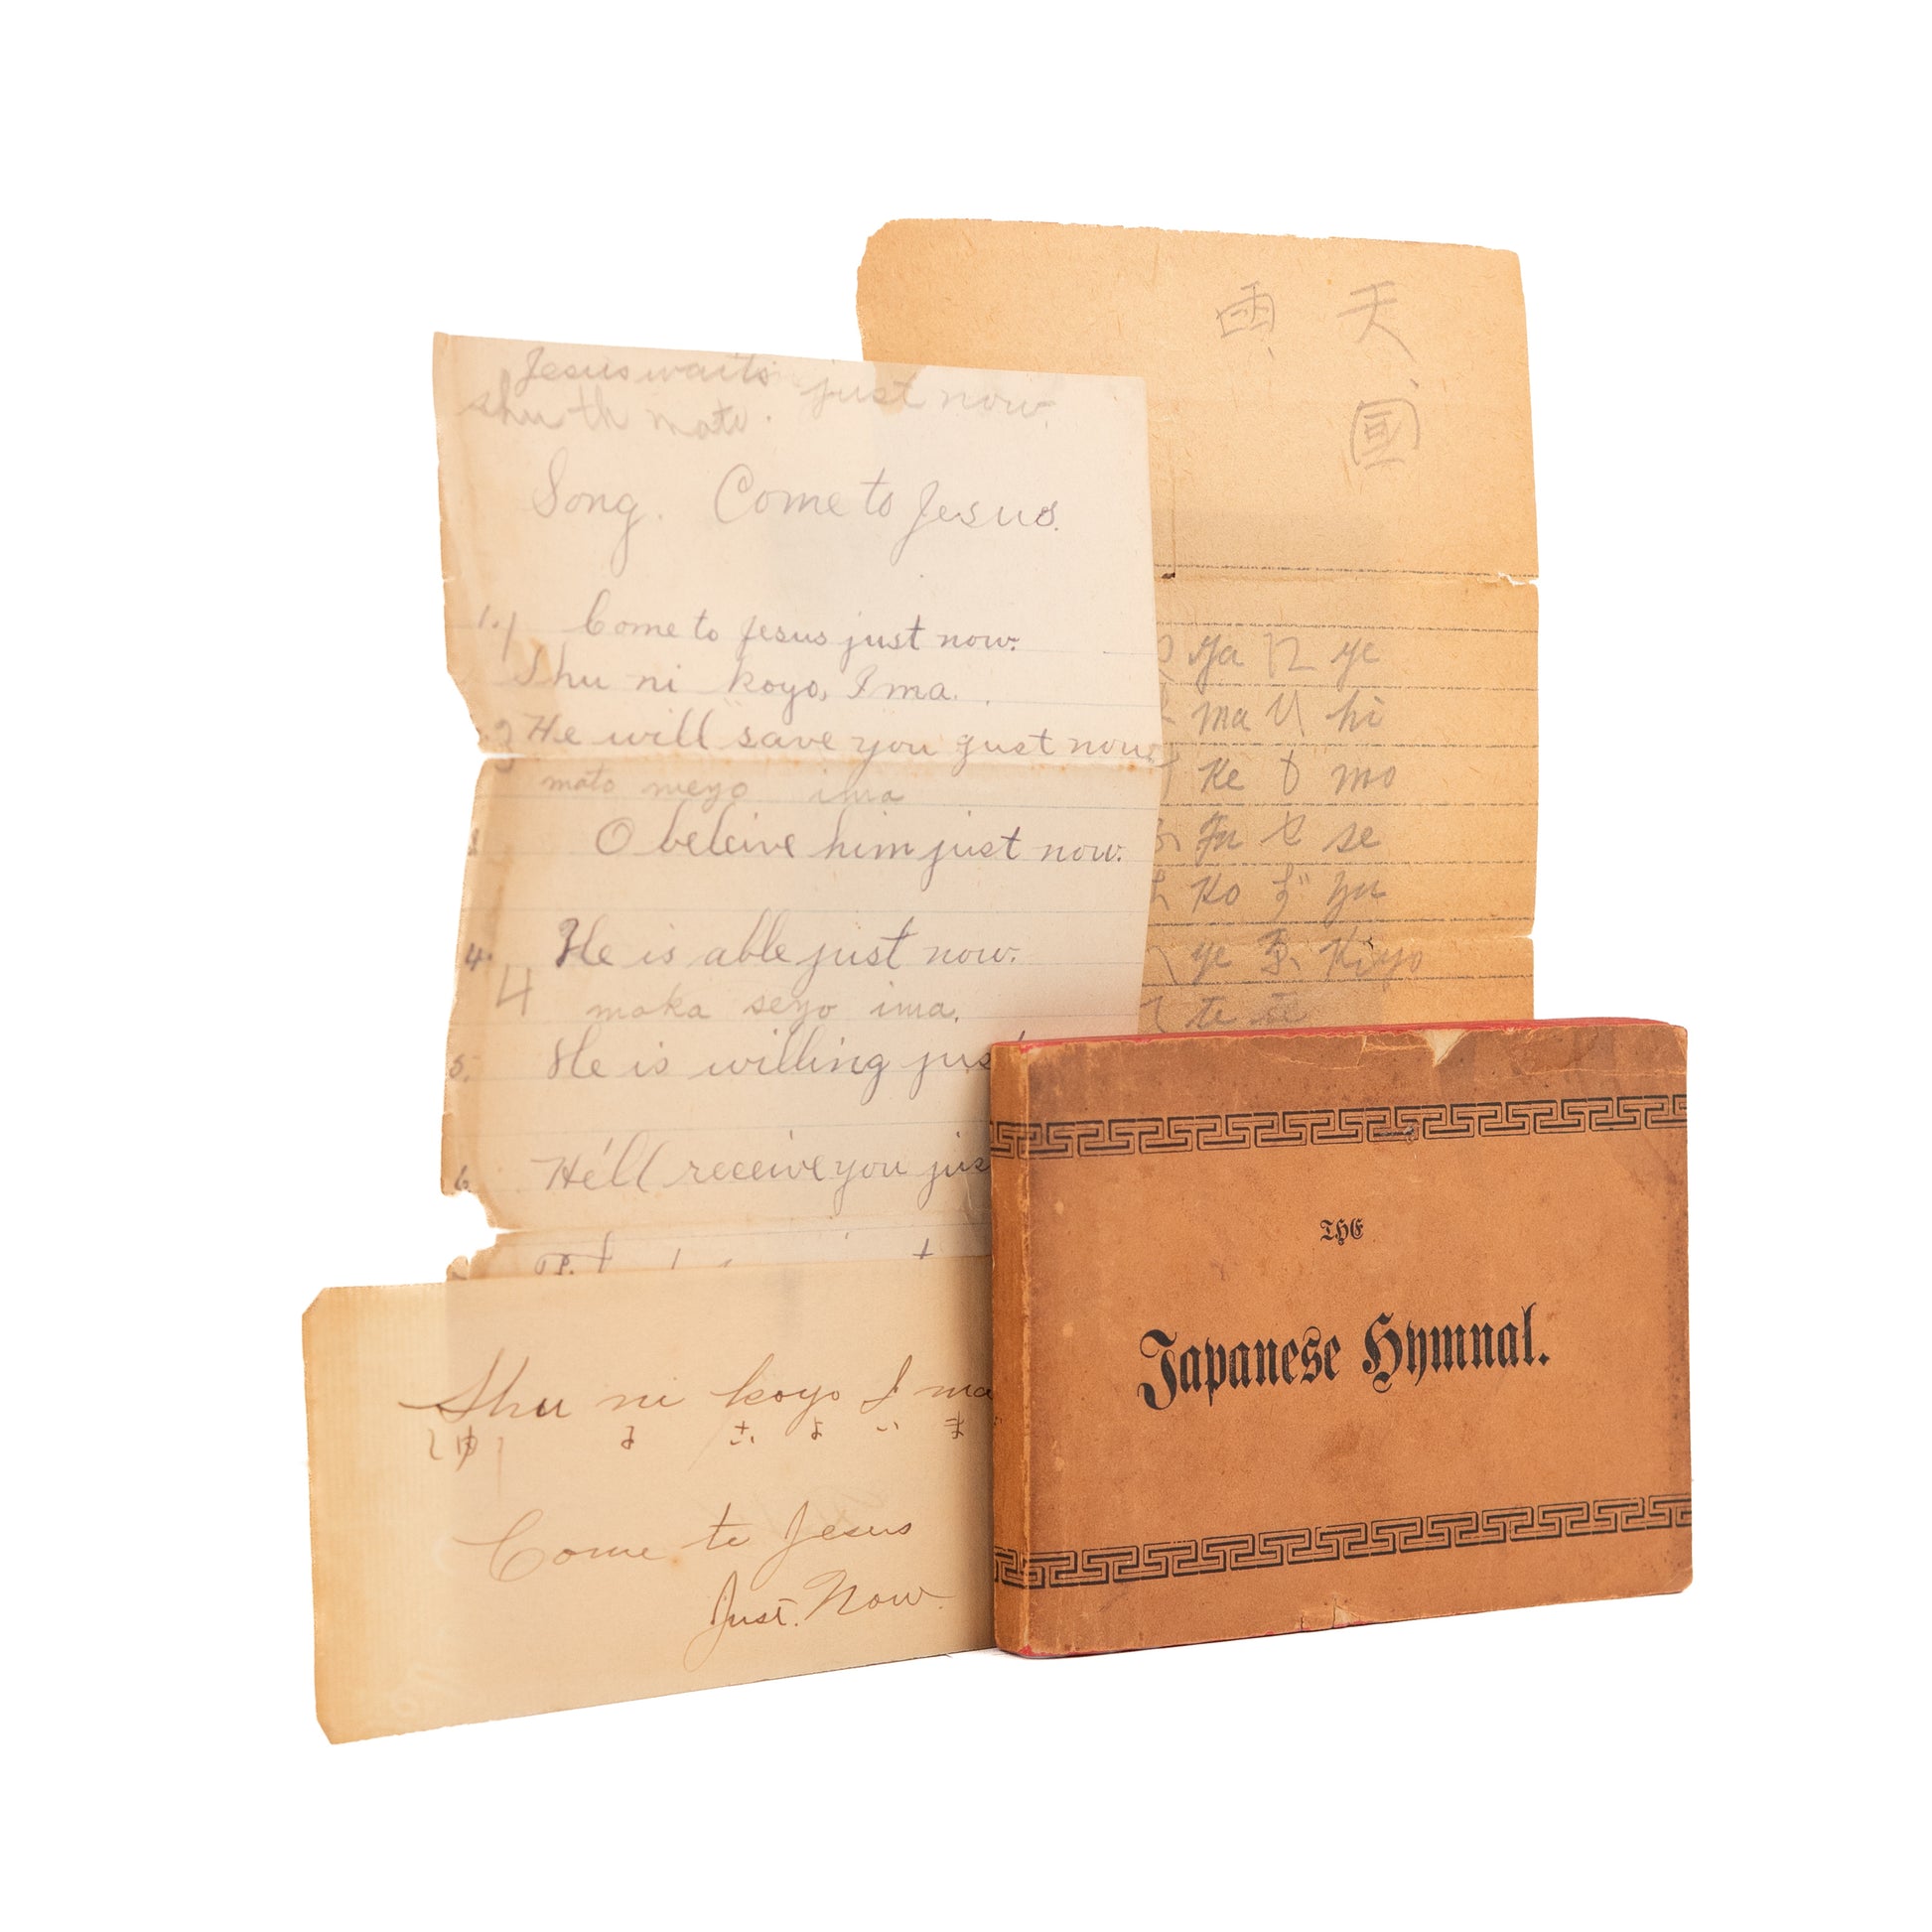 Jesus waits just now.
Song. Come to Jesus.
1. Come to Jesus just now.
Shu ni koyo, Ima.
He will save you just now
ima
O beleive him just now.
4. He is able just now.
4 maka seyo ima.
5. He is willing
6. He'll receive you
天雨
国
ya ye
ma hi
Ke mo
Fu セ se
Ko ず zu
ye Kiyo
te
Shu ni koyo I ma
し ゆ に こ よ い ま
Come to Jesus
Just. Now.
THE
Japanese Hymnal.